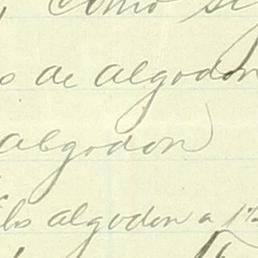 como si
s de algodon
algodon)
lbs algodon a 1